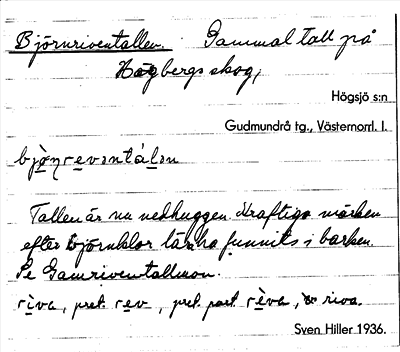 Björnriventallen. Gammal tall på
Högbergs skog,
Högsjö s:n
Gudmundrå tg., Västernorrl. l.
bjò̱ṉṟe̱vo̱ntálo̱n
Tallen är nu nedhuggen. Kraftiga märken
efter björnklor lära ha funnits i barken.
Se Gamriventallmon.
ri̱va, pret. re̱v, pret. part. rè̱va, riva.
Sven Hiller 1936.